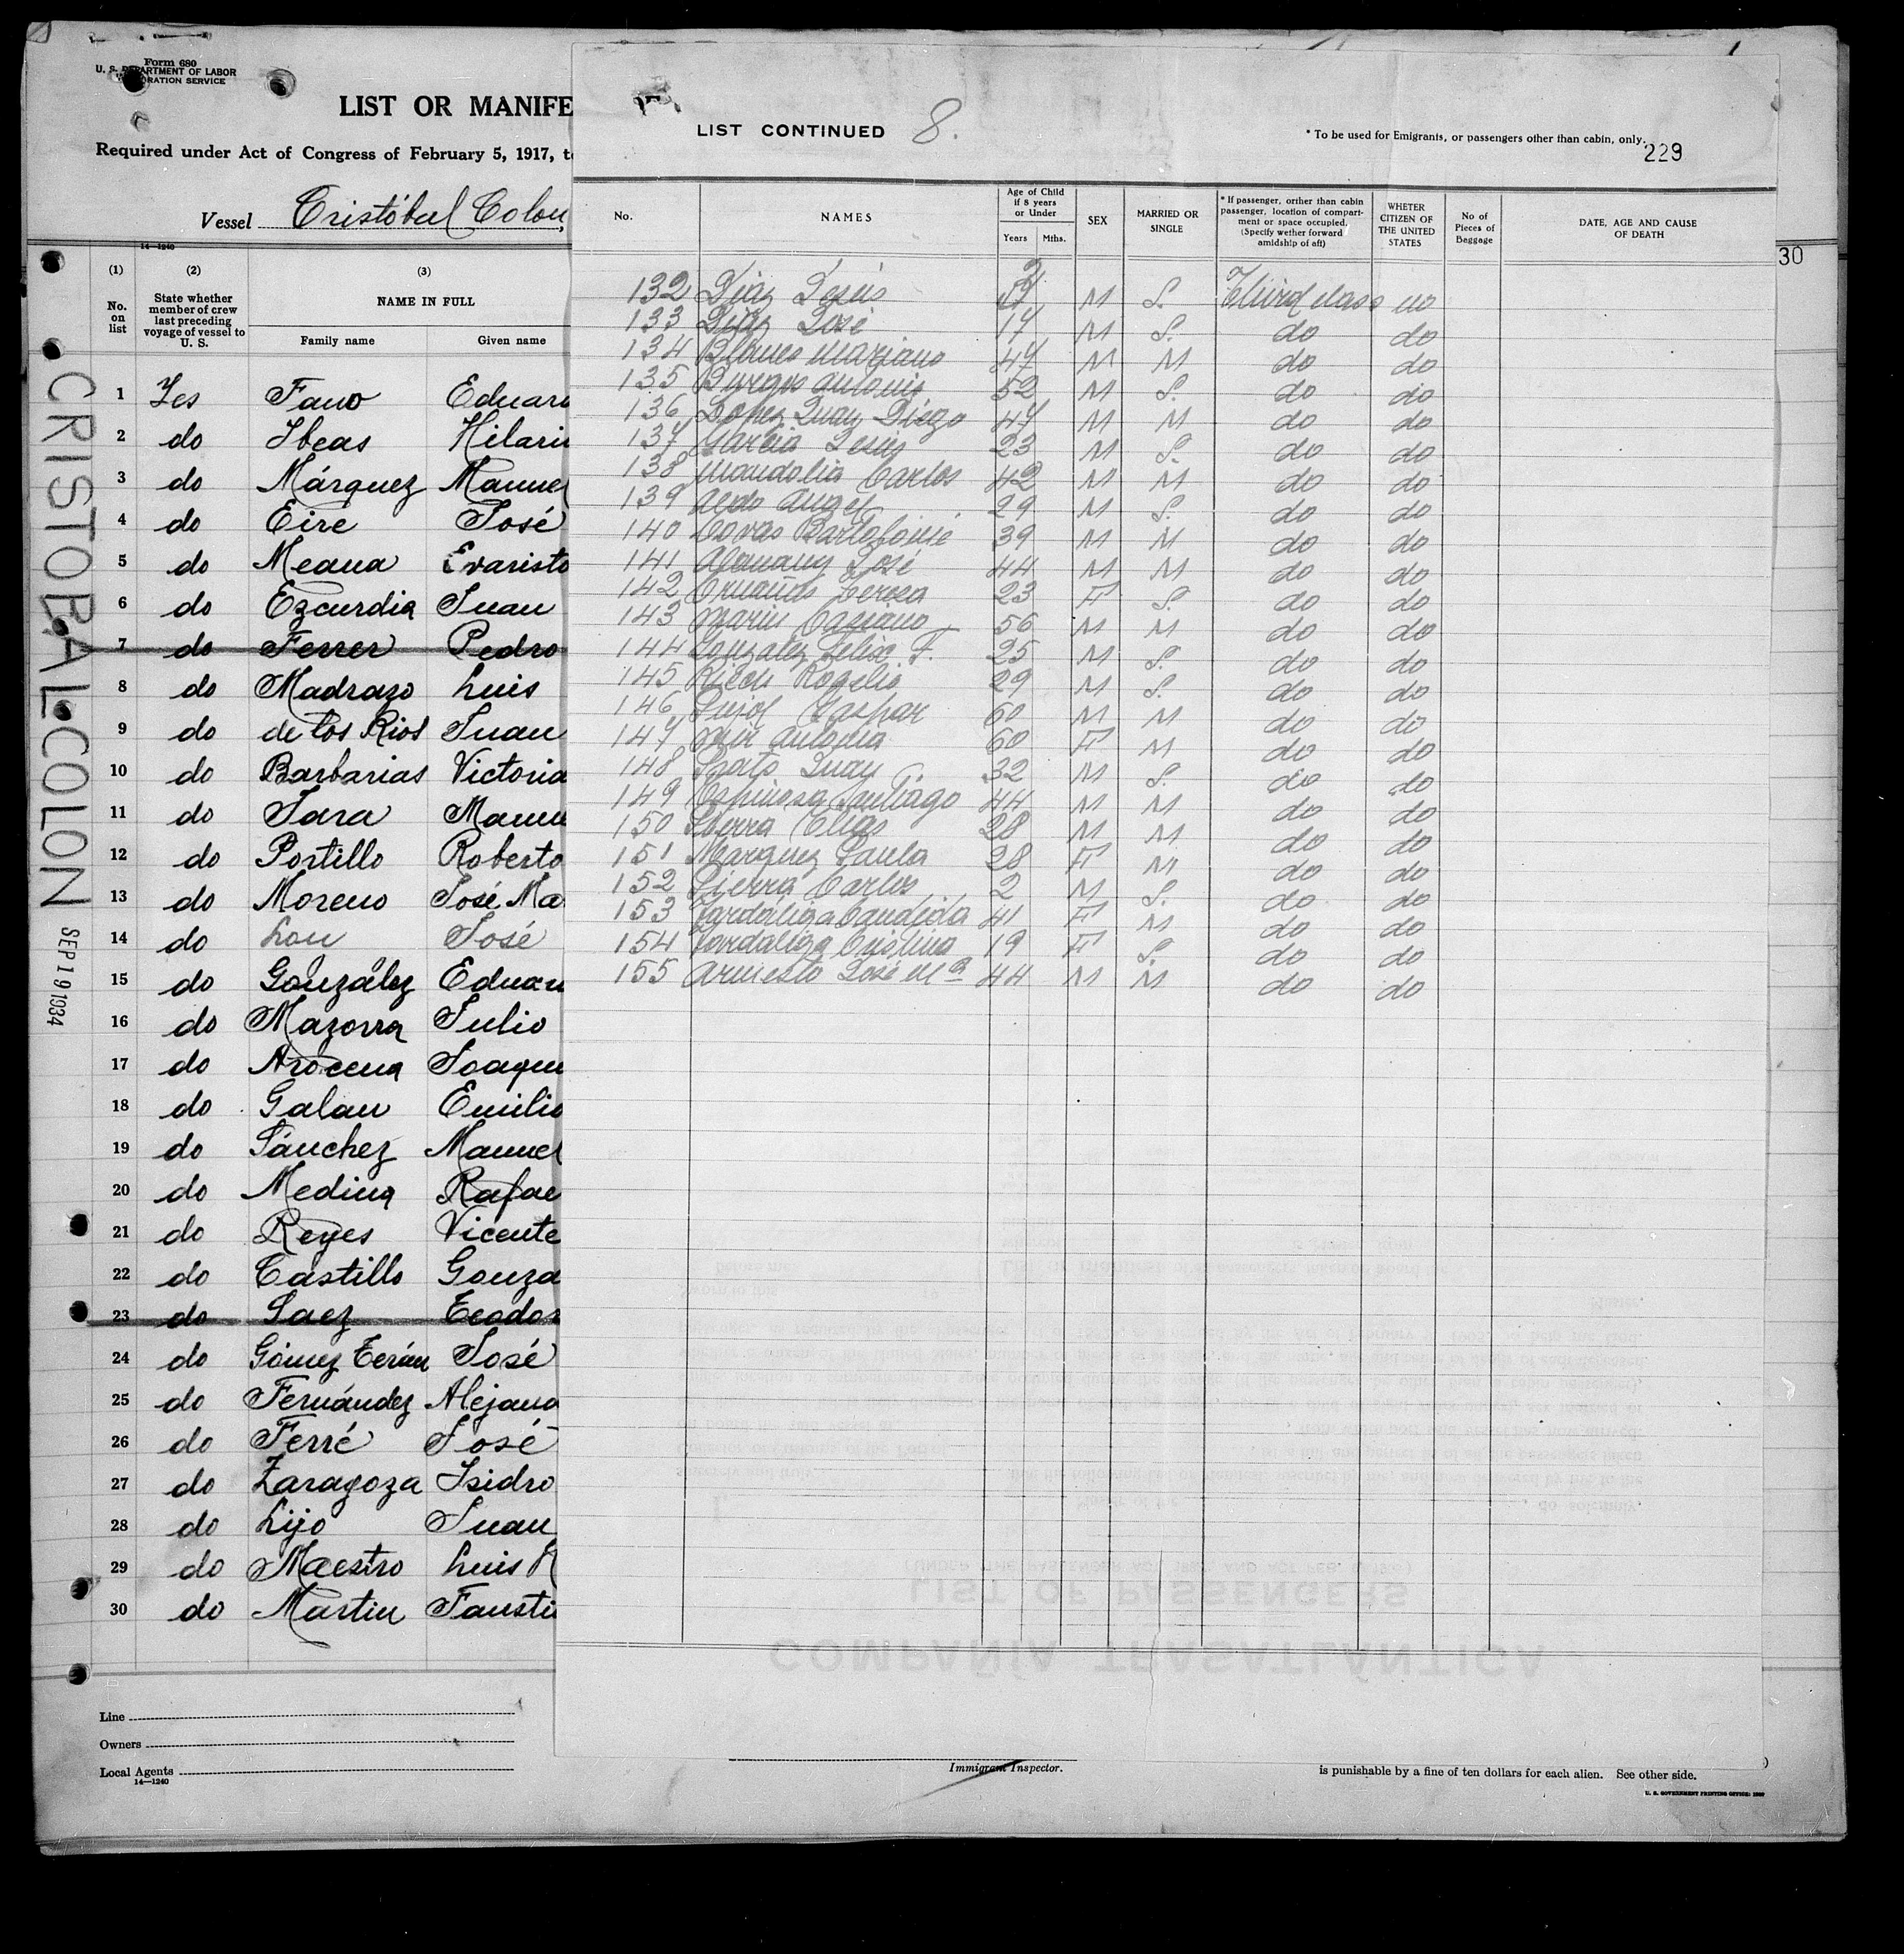 Form 680
U. S. DEPARTMENT OF LABOR
LIST OR MANIFE
Required under Act of Congress of February 5, 1917, t
Vessel Cristóbal Colon,
14—1240
(1) (2) (3)
No. on list
State whether member of crew last preceding voyage of vessel to U. S.
NAME IN FULL
Family name Given name
1 Yes Fano Eduard
2 do Ibeas Hilario
3 do Márquez Manuel
4 do Eire José
5 do Meana Evaristo
6 do Ezcurdia Juan
7 do Ferrer Pedro
8 do Madrazo Luis
9 do de los Rios Juan
10 do Barbarias Victoria
11 do Jara Manu
12 do Portillo Roberto
13 do Moreno José Ma
14 do Lou José
15 do González Eduar
16 do Mazorra Julio
17 do Arocena Joaqui
18 do Galan Emilio
19 do Sánchez Manuel
20 do Medina Rafae
21 do Reyes Vicente
22 do Castillo Gonza
23 do Saez Teodor
24 do Gómez Terán José
25 do Fernández Alejand
26 do Ferré José
27 do Zaragoza Isidro
28 do Lijo Juan
29 do Maestro Luis
30 do Martin Fausti
Line
Owners
Local Agents
14—1240
CRISTOBAL COLON
SEP 19 1934
LIST CONTINUED 8.
* To be used for Emigrants, or passengers other than cabin, only.
229
No.
NAMES
Age of Child if 8 years or Under
Years Mths.
SEX
MARRIED OR SINGLE
* If passenger, orither than cabin passenger, location of compart- ment or space occupied. (Specify wether forward amidship of aft)
WHETER CITIZEN OF THE UNITED STATES
No of Pieces of Baggage
DATE, AGE AND CAUSE OF DEATH
30
132 Diaz Jesús M S. Third class no
133 Diaz José 17 M S. do do
134 Mariano 47 M M do do
135 Burgos Antonio 52 M S. do do
136 Lopez Juan Diego 47 M M do do
137 Garcia Jesús 23 M S. do do
138 Mandolia Carlos 42 M M do do
139 Aedo Angel 29 M S. do do
140 Covas Bartolomé 39 M M do do
141 Alemany José 44 M M do do
142 Teresa 23 F S. do do
143 Marin Casiano 56 M M do do
144 Gonzalez Felix F. 25 M S. do do
145 Rogelio 29 M S. do do
146 Pujol Gaspar 60 M M do do
147 Antonia 60 F M do do
148 Prats Juan 32 M S. do do
149 Espinosa Santiago 44 M M do do
150 Sierra Elias 28 M M do do
151 Marquez Paula 28 F M do do
152 Sierra Carlos 2 M S. do do
153 Candida 41 F M do do
154 Cristina 19 F S. do do
155 Armesto José Mª 44 M M do do
Immigrant Inspector.
is punishable by a fine of ten dollars for each alien. See other side.